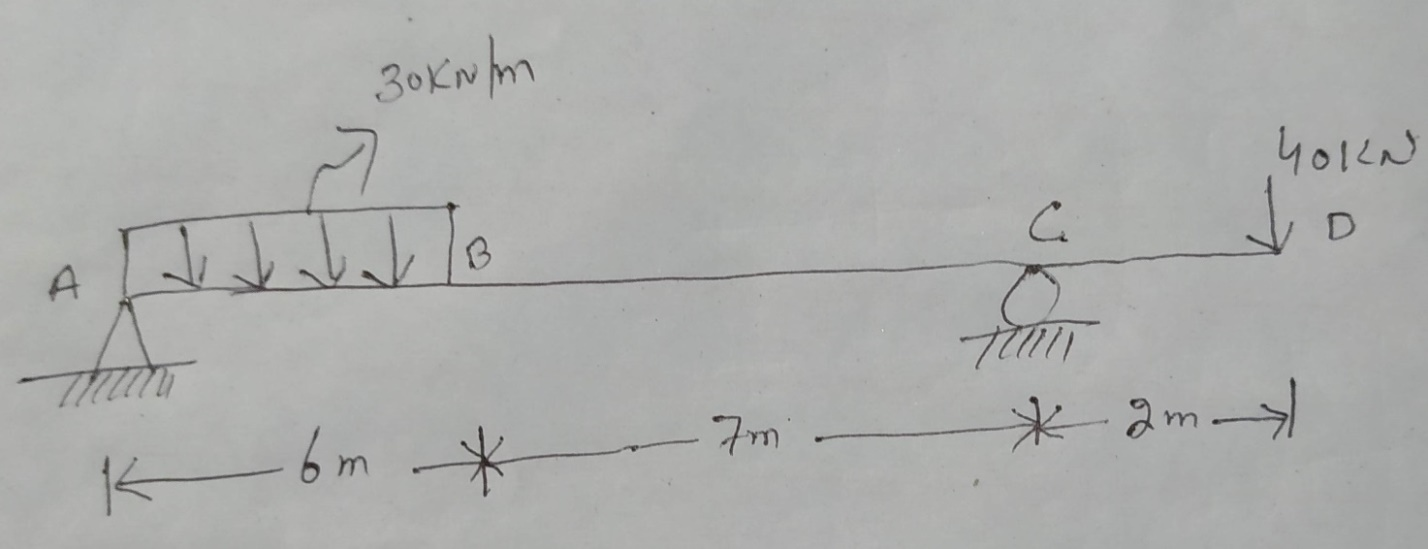 30KN/m
40KN
A
B
C
D
6m
7m
2m